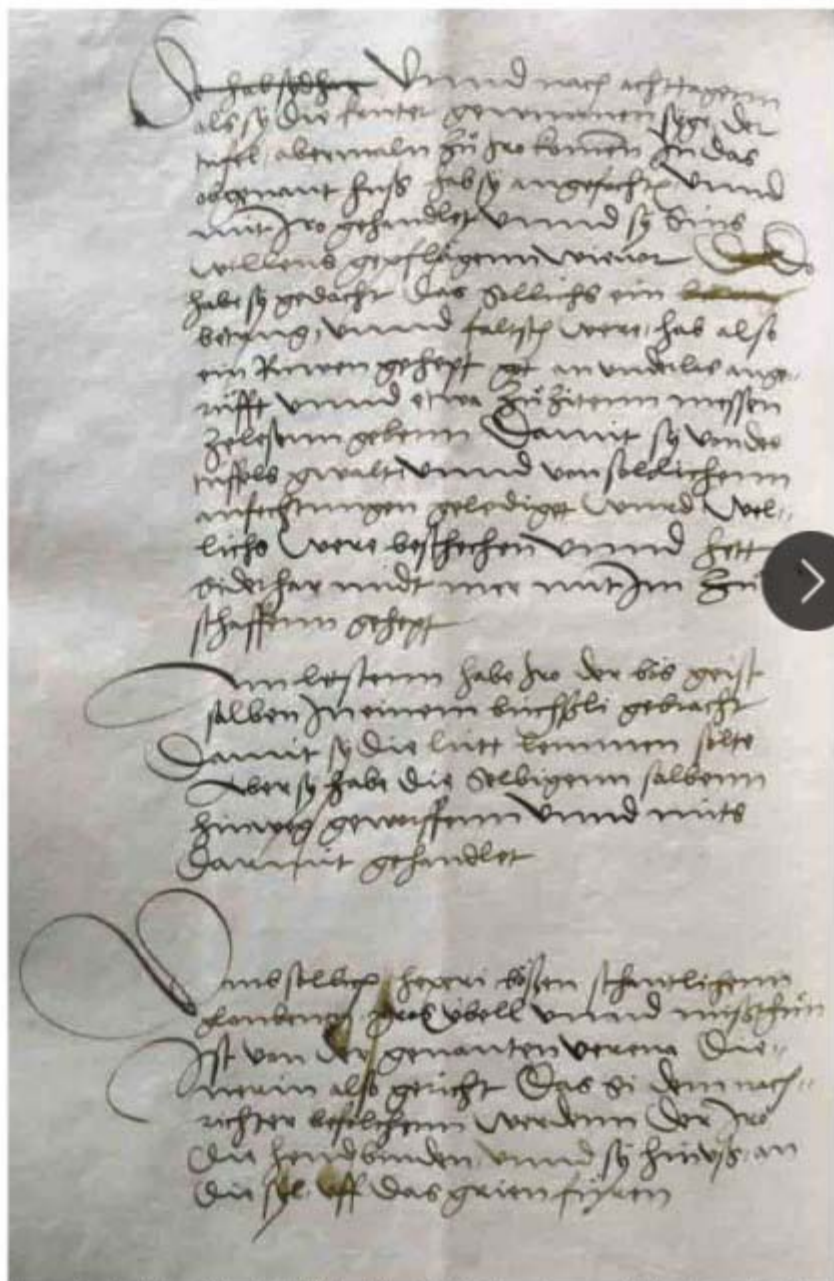 So hab sydhar Vnnd nach acht tagenn
als sy die genommen syge der
tüfel abermaln zů Jro komen Jn das
obgenant huß hab sy angefochten Vnnd
mit Jro gehandlet Vnnd sy Sins
willens gepflägenn wie vor Do
habe sy gedacht das Sollichs ein
betrug Vnnd faltsch were hab also
ein Ruwen gehept got an vnderlas ange-
rüfft Vnnd etwa zů Zitenn messen
Zelesenn gebenn Damit sy von des
tüffels gwalt Vnnd von sollichenn
anfechtungen gelediget Wurd Wel-
lichs Were beschechen Vnnd hett
sidehar nüdt mer mit Jm zů
schaffenn gehept
Zum letstenn habe Jro der bös geist
salben Jn einem büchsli gebracht
Damit sy die lütt lemmen sölte
Aber sy habe die Selbigenn salbenn
hinweg geworffenn Vnnd nüts
Darmit gehandlet
Vmb sollich hexeri bösen schantlichenn
glouben gros übell Vnnd mißthůn
Jst von der genanten verena Die-
nerin also gericht Das Si dem nach-
richter befolchenn Werdenn Der Jro
die hend binden Vnnd sy hinuß an
die syl uff das grien füren